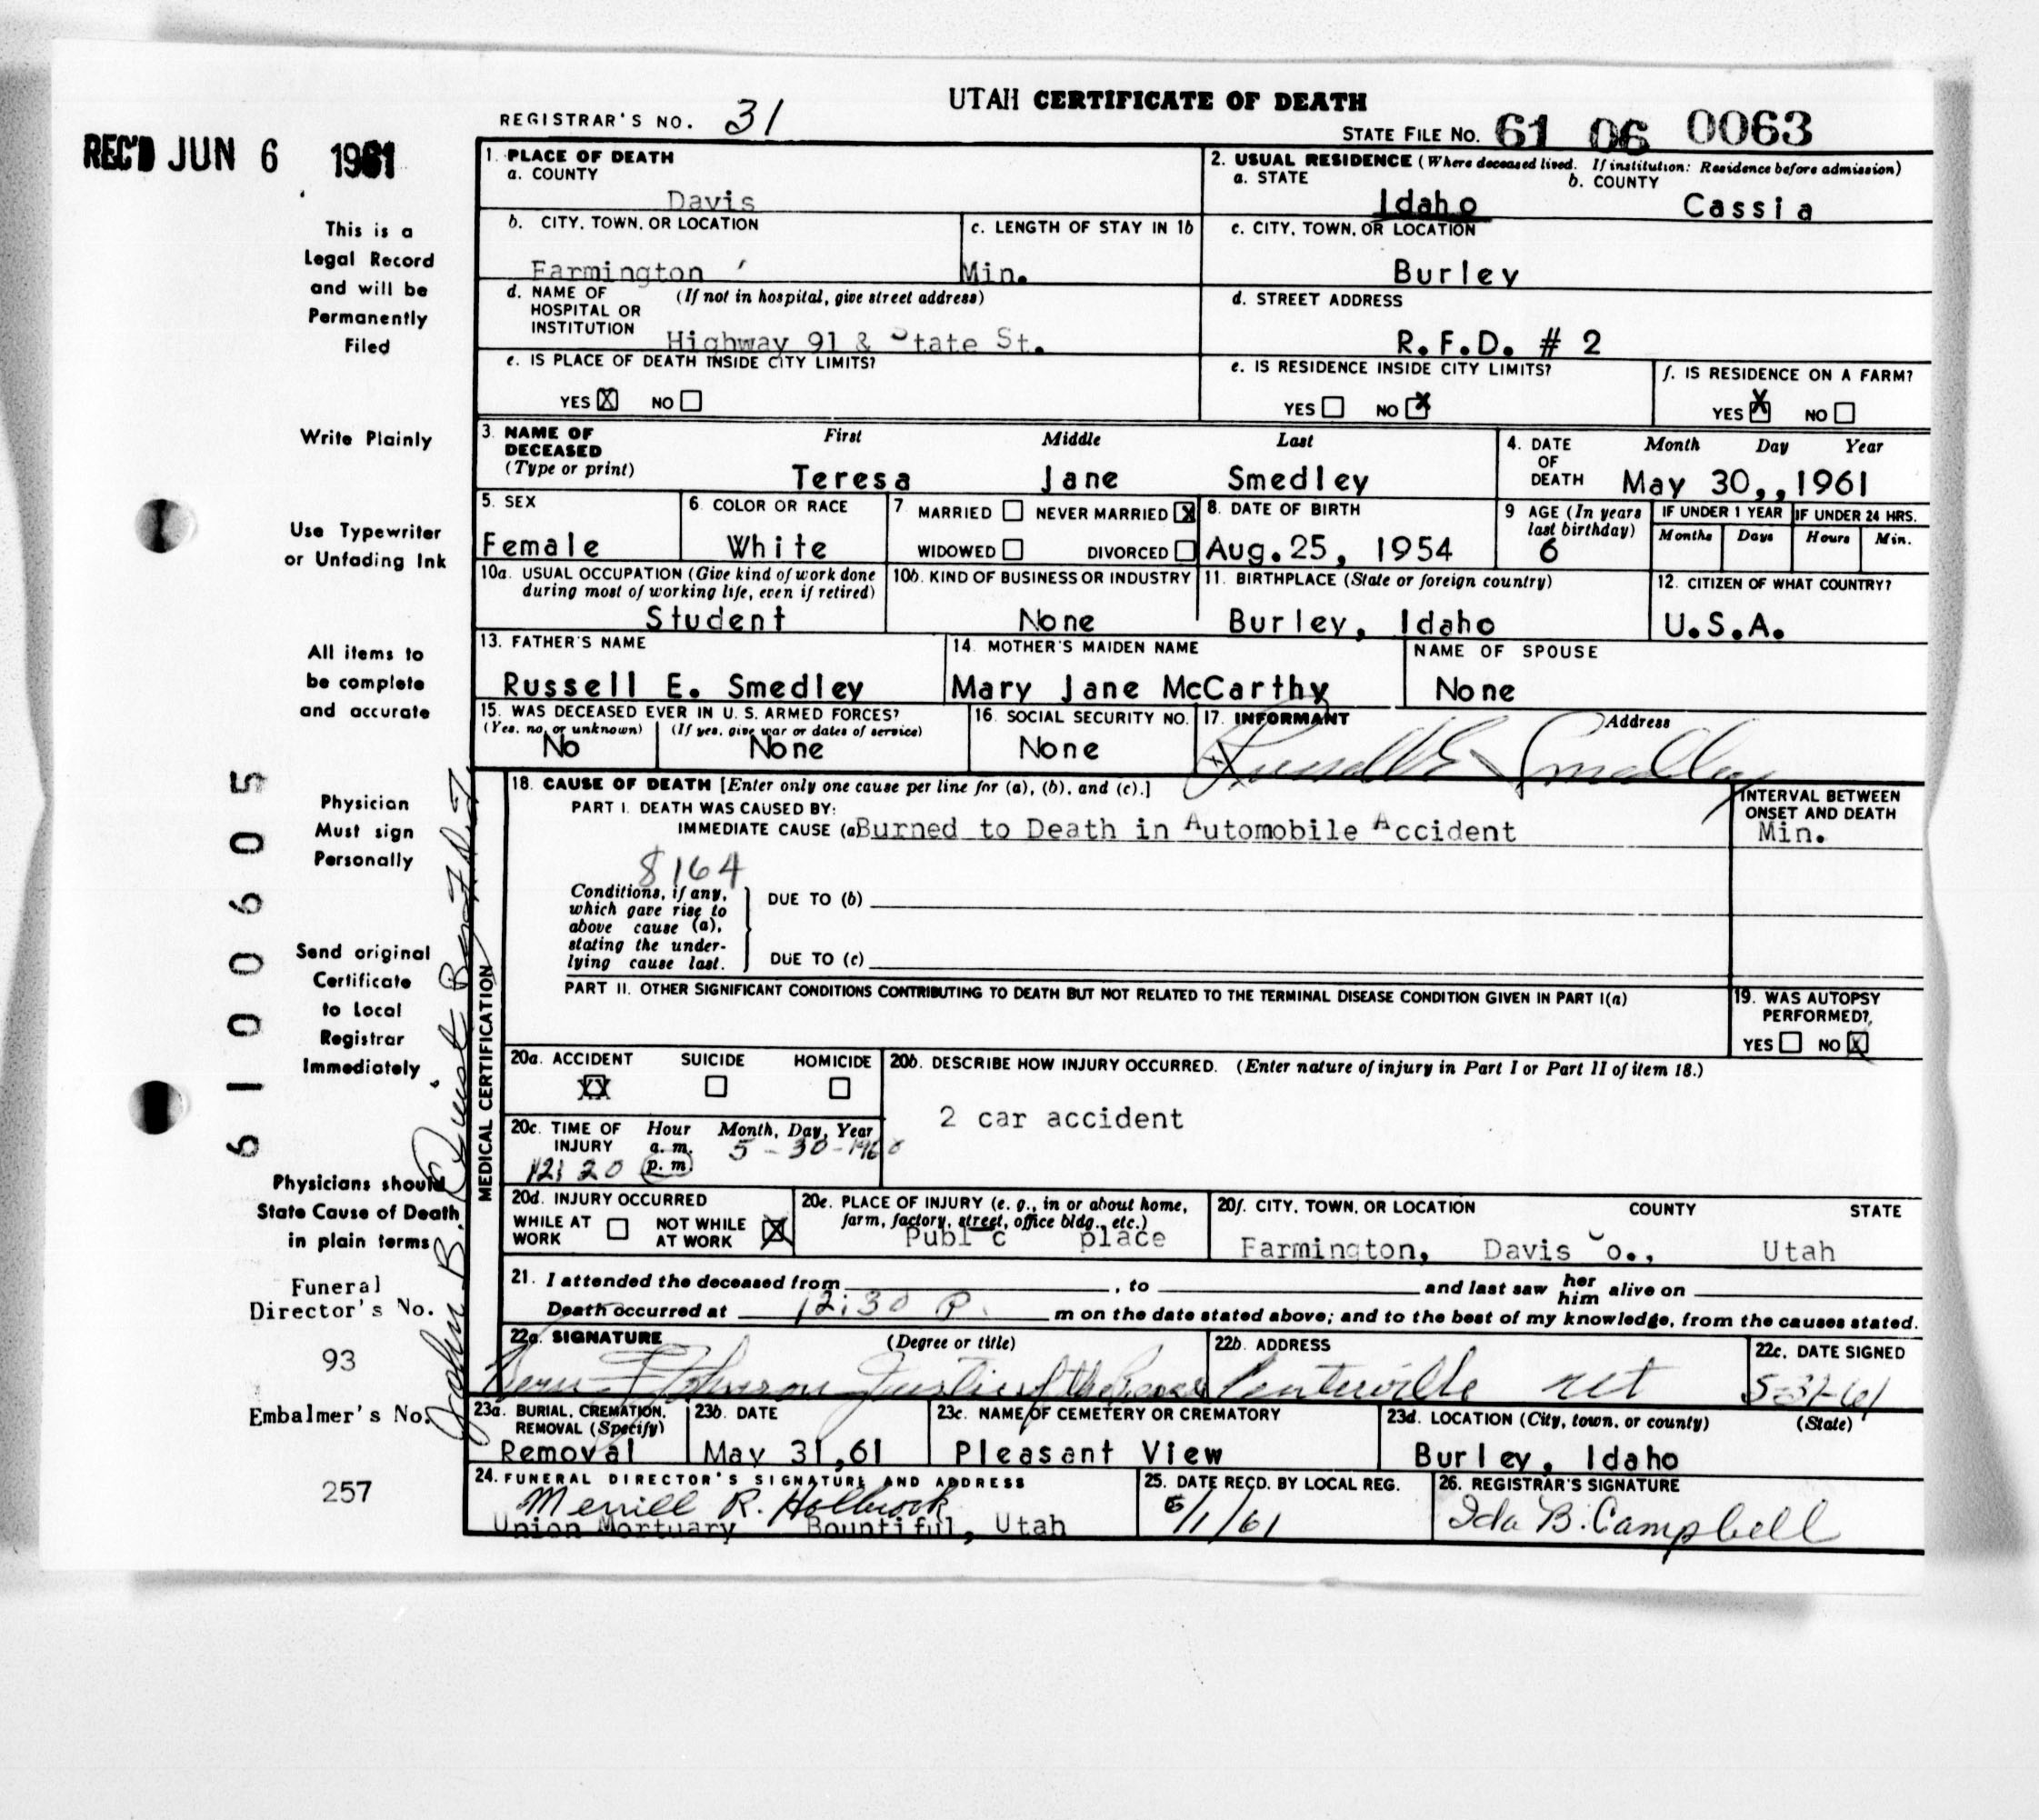 UTAH CERTIFICATE OF DEATH
REGISTRAR'S NO. 31
STATE FILE NO. 61 06 0063
REC'D JUN 6 1961
This is a
Legal Record
and will be
Permanently
Filed
Write Plainly
Use Typewriter
or Unfading Ink
All items to
be complete
and accurate
Physician
Must sign
Personally
Send original
Certificate
to Local
Registrar
Immediately
Physicians should
State Cause of Death
in plain terms
Funeral
Director's No.
93
Embalmer's No.
257
6100605
1. PLACE OF DEATH
a. COUNTY
Davis
2. USUAL RESIDENCE (Where deceased lived. If institution: Residence before admission)
a. STATE b. COUNTY
Idaho Cassia
b. CITY, TOWN, OR LOCATION
Farmington
c. LENGTH OF STAY IN 1b
Min.
c. CITY, TOWN, OR LOCATION
Burley
d. NAME OF (If not in hospital, give street address)
HOSPITAL OR
INSTITUTION
Highway 91 & State St.
d. STREET ADDRESS
R.F.D. # 2
e. IS PLACE OF DEATH INSIDE CITY LIMITS?
YES X NO
e. IS RESIDENCE INSIDE CITY LIMITS?
YES NO X
f. IS RESIDENCE ON A FARM?
YES X NO
3. NAME OF First Middle Last
DECEASED
(Type or print)
Teresa Jane Smedley
4. DATE Month Day Year
OF
DEATH May 30,,1961
5. SEX
Female
6. COLOR OR RACE
White
7. MARRIED NEVER MARRIED X
WIDOWED DIVORCED
8. DATE OF BIRTH
Aug.25, 1954
9 AGE (In years
last birthday)
6
IF UNDER 1 YEAR
Months Days
IF UNDER 24 HRS.
Hours Min.
10a. USUAL OCCUPATION (Give kind of work done
during most of working life, even if retired)
Student
10b. KIND OF BUSINESS OR INDUSTRY
None
11. BIRTHPLACE (State or foreign country)
Burley, Idaho
12. CITIZEN OF WHAT COUNTRY?
U.S.A.
13. FATHER'S NAME
Russell E. Smedley
14. MOTHER'S MAIDEN NAME
Mary Jane McCarthy
NAME OF SPOUSE
None
15. WAS DECEASED EVER IN U.S. ARMED FORCES?
(Yes, no, or unknown) (If yes, give war or dates of service)
No None
16. SOCIAL SECURITY NO.
None
17. INFORMANT Address
X Russell E Smedley
MEDICAL CERTIFICATION
18. CAUSE OF DEATH [Enter only one cause per line for (a), (b), and (c).]
PART I. DEATH WAS CAUSED BY:
IMMEDIATE CAUSE (a Burned to Death in Automobile Accident
INTERVAL BETWEEN
ONSET AND DEATH
Min.
8164
Conditions, if any,
which gave rise to
above cause (a),
stating the under-
lying cause last.
DUE TO (b)
DUE TO (c)
PART II. OTHER SIGNIFICANT CONDITIONS CONTRIBUTING TO DEATH BUT NOT RELATED TO THE TERMINAL DISEASE CONDITION GIVEN IN PART I(a)
19. WAS AUTOPSY
PERFORMED?
YES NO X
20a. ACCIDENT SUICIDE HOMICIDE
XX
20b. DESCRIBE HOW INJURY OCCURRED. (Enter nature of injury in Part I or Part II of item 18.)
2 car accident
20c. TIME OF Hour Month, Day, Year
INJURY a. m. 5-30-1960
12:20 p. m
20d. INJURY OCCURRED
WHILE AT WORK
NOT WHILE AT WORK X
20e. PLACE OF INJURY (e. g., in or about home,
farm, factory, street, office bldg., etc.)
Publ c place
20f. CITY, TOWN, OR LOCATION COUNTY STATE
Farmington, Davis Co., Utah
21. I attended the deceased from , to and last saw her him alive on
Death occurred at 12:30 P. m on the date stated above; and to the best of my knowledge, from the causes stated.
22a. SIGNATURE (Degree or title)
Johnson Justice of the Peace
22b. ADDRESS
Centerville Ut
22c. DATE SIGNED
5-31-61
23a. BURIAL, CREMATION,
REMOVAL (Specify)
Removal
23b. DATE
May 31,61
23c. NAME OF CEMETERY OR CREMATORY
Pleasant View
23d. LOCATION (City, town, or county) (State)
Burley, Idaho
24. FUNERAL DIRECTOR'S SIGNATURE AND ADDRESS
Merrill R. Holbrook
Union Mortuary Bountiful, Utah
25. DATE RECD. BY LOCAL REG.
6/1/61
26. REGISTRAR'S SIGNATURE
Ida B. Campbell